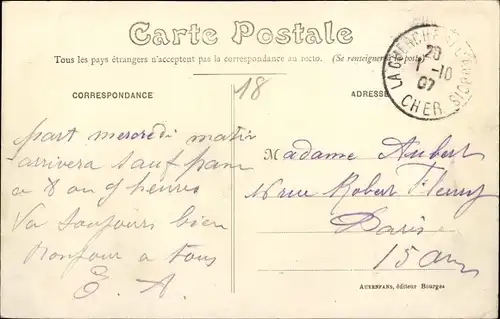 Carte Postale
Tous les pays étrangers n'acceptent pas la correspondance au recto. (Se renseigner à la poste)
CORRESPONDANCE
18
ADRESSE
LA GUERCHE
20
1-10
07
CHER
part mercredi matin
arrivera sauf pane
a 8 ou 9 heures
Va toujours bien
Bonjour a tous
E. A.
Madame Aubert
16 rue Robert Fleury
Paris
15 arr
AUXENFANS, éditeur Bourges